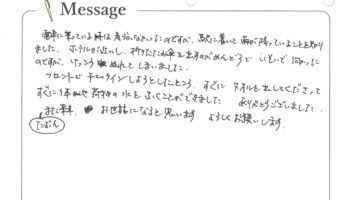 Message
電車に乗っている時は気づかなかったのですが、駅に着いて雨が降っていることを知り
ました。ホテルが近いし、折りたたみ傘を出すのがめんどうで いそいで向かった
のですが、けっこうぬれてしまいました。
フロントでチェックインしようとしたところ、すぐに タオルを出してくださって
すぐに体や荷物の水をふくことができました。 ありがとうございました。
また来年、お世話になると思います。よろしくお願いします。
たぶん